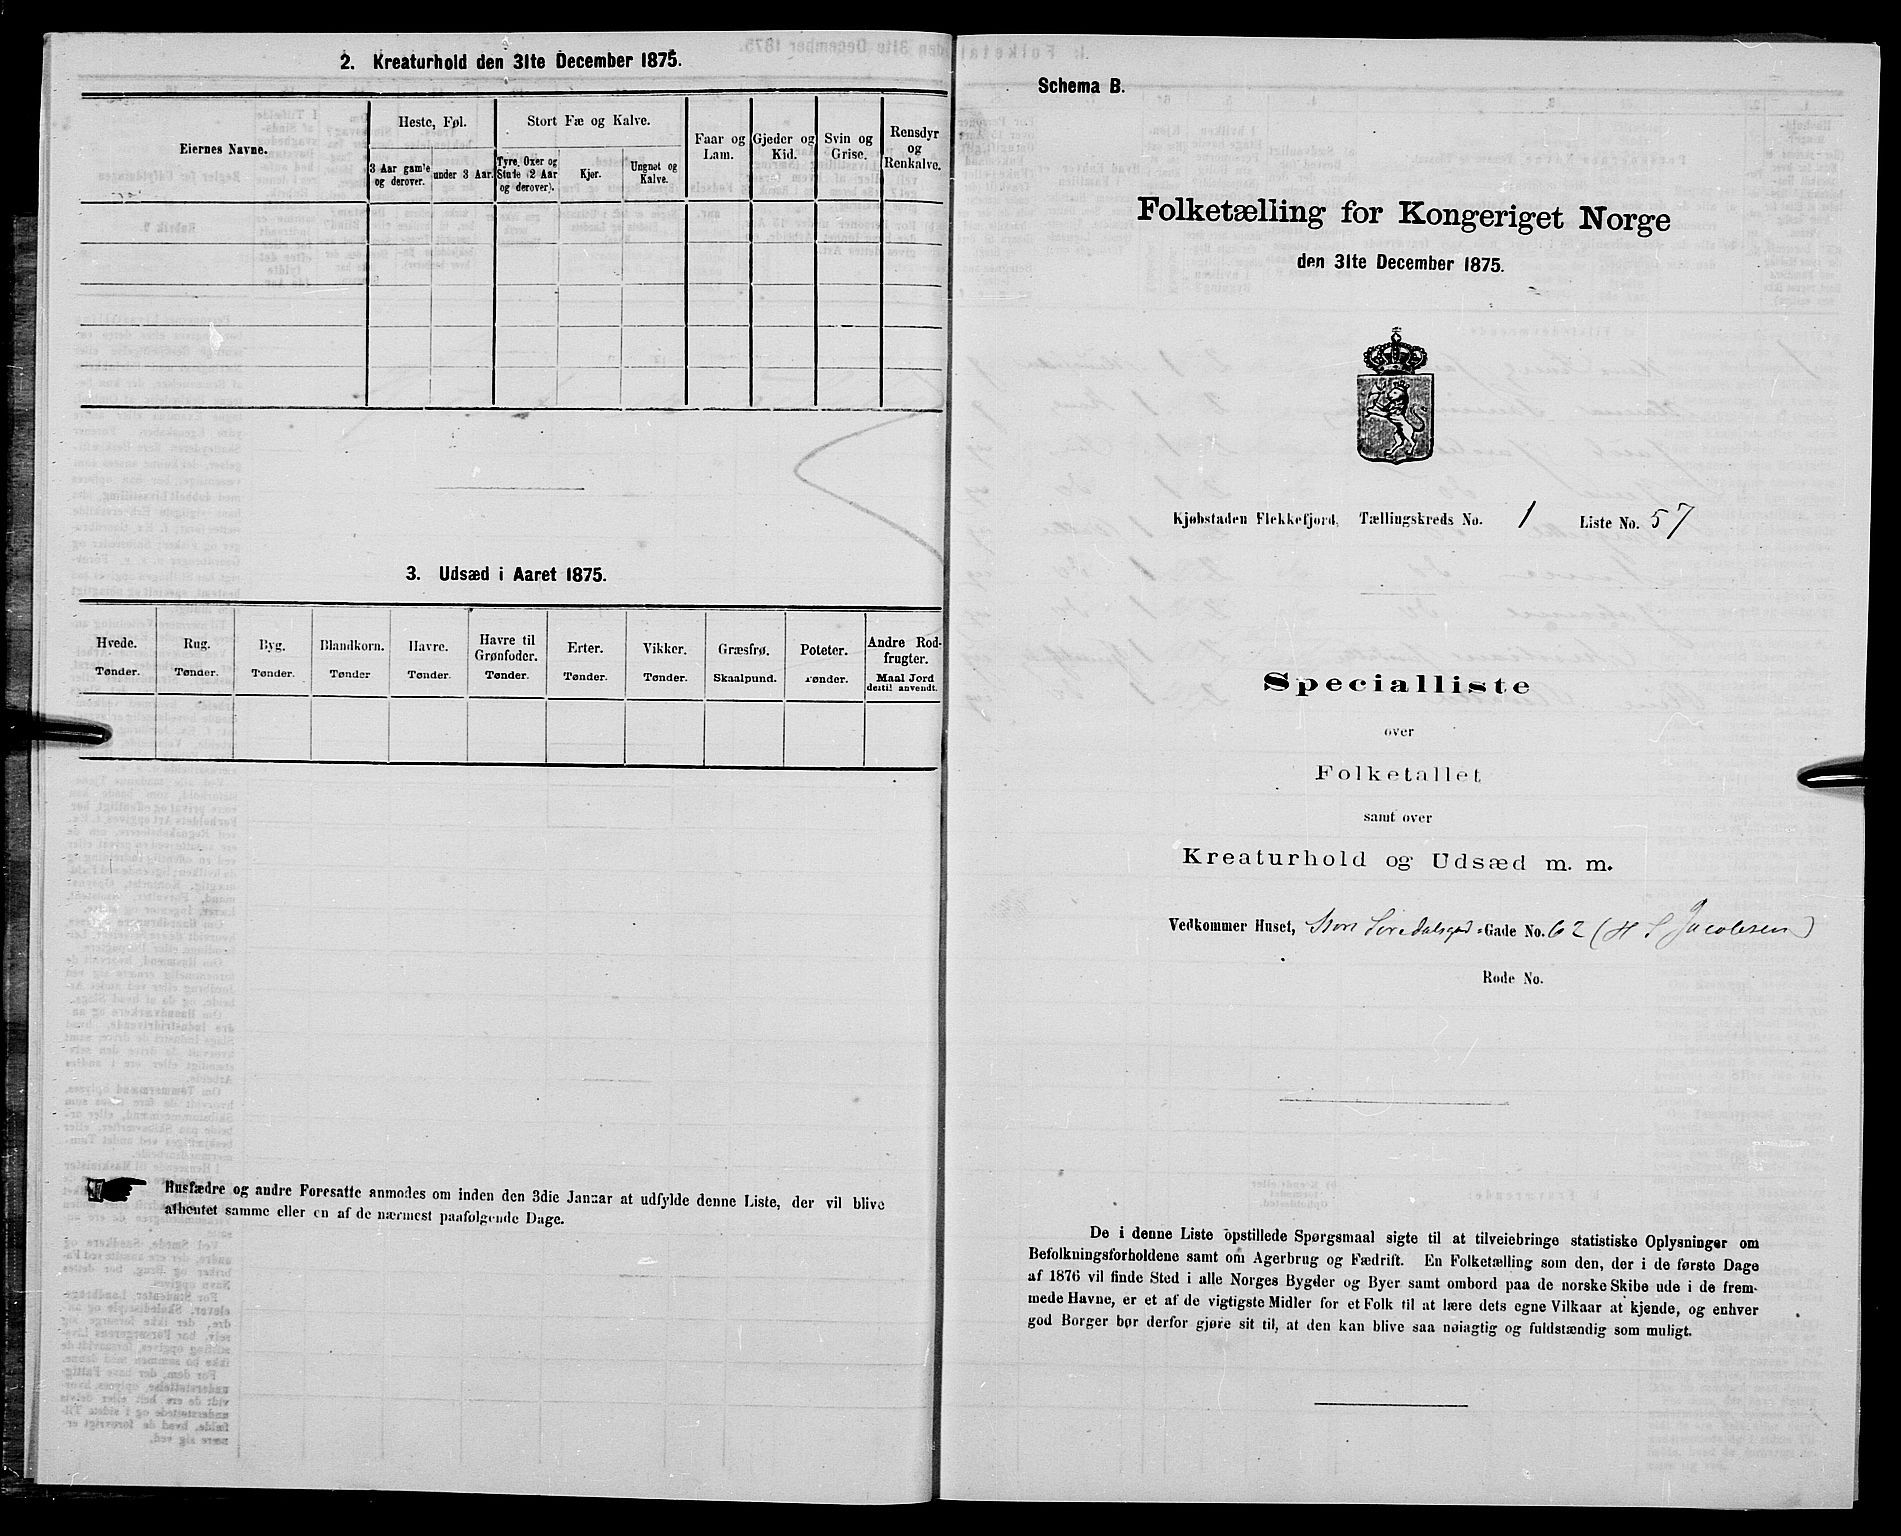 2. Kreaturhold den 31te December 1875.
Eiernes Navne.
Heste, Føl.
Stort Fæ og Kalve.
Faar og
Lam.
Gjeder og
Kid.
Svin og
Grise.
Rensdyr
og
Renkalve.
3 Aar gamle
og derover.
under 3 Aar.
Tyre, Oxer og
Stude (2 Aar
og derover).
Kjør.
Ungnøt og
Kalve.
3. Udsæd i Aaret 1875.
Hvede.
Rug.
Byg.
Blandkorn.
Havre.
Havre til
Grønfoder.
Erter.
Vikker.
Græsfrø.
Poteter.
Andre Rod-
frugter.
Tønder.
Tønder.
Tønder.
Tønder
Tønder.
Tønder.
Tønder.
Tønder.
Skaalpund.
Tønder.
Maal Jord
dertil anvendt.
Husfædre og andre Foresatte anmodes om inden den 3die Januar at udfylde denne Liste, der vil blive
afhentet samme eller en af de nærmest paafølgende Dage.
Schema B.
Folketælling for Kongeriget Norge
den 31te December 1875.
Kjøbstaden Flekkefjord, Tællingskreds No. 1 Liste No. 57
Specialliste
over
Folketallet
samt over
Kreaturhold og Udsæd m. m.
Vedkommer Huset, Gade No. 62 (H S Jacobsen)
Rode No.
De i denne Liste opstillede Spørgsmaal sigte til at tilveiebringe statistiske Oplysninger om
Befolkningsforholdene samt om Agerbrug og Fædrift. En Folketælling som den, der i de første Dage
af 1876 vil finde Sted i alle Norges Bygder og Byer samt ombord paa de norske Skibe ude i frem-
mede Havne, er et af de vigtigste Midler for et Folk til at lære dets egne Vilkaar at kjende, og enhver
god Borger bør derfor gjøre sit til, at den kan blive saa nøiagtig og fuldstændig som muligt.